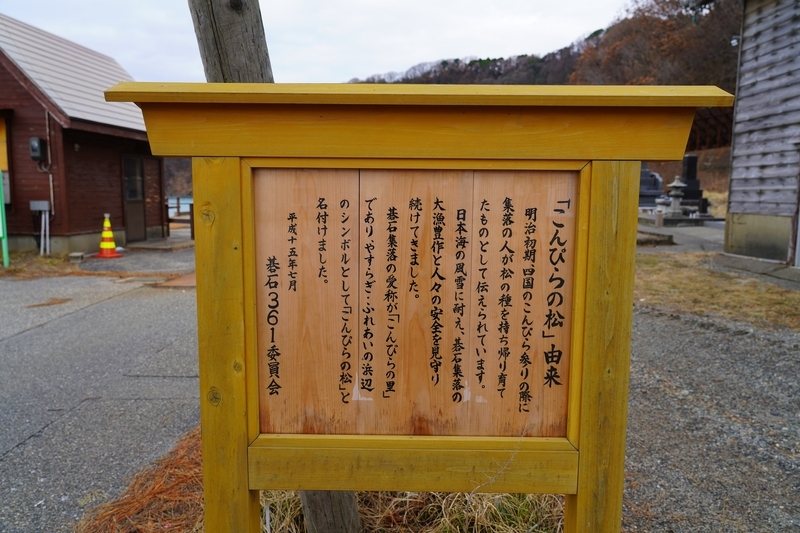 「こんぴらの松」由来
明治初期、四国のこんぴら参りの際に
集落の人が松の種を持ち帰り育て
たものとして伝えられています。
日本海の風雪に耐え、碁石集落の
大漁豊作と人々の安全を見守り
続けてきました。
碁石集落の愛称が「こんぴらの里」
であり、やすらぎ・ふれあいの浜辺
のシンボルとして「こんぴらの松」と
名付けました。
平成十五年七月
碁石361委員会